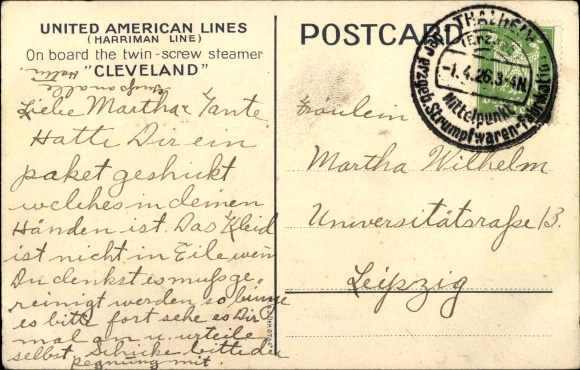 UNITED AMERICAN LINES
(HARRIMAN LINE)
On board the twin-screw steamer
"CLEVELAND"
Gruss an alle
Liebe Martha Tante
Hatte Dir ein
paket geshickt
welches in deinen
Händen ist. Das Kleid
ist nicht in Eile wen
Du denkst es muss ge
reinigt werden, so
es bitte fort sehe es Dir
mal an u. urteile
selbst. Schicke bitte die
regnung mit.
POSTCARD
THALHEIM
(ERZGEB.)
-1.4.26.3-4N.
Mittelpunkt
der erzgeb. Strumpfwaren-Fabrikation
Fräulein
Martha Wilhelm
Universitätsraße 13.
Leipzig